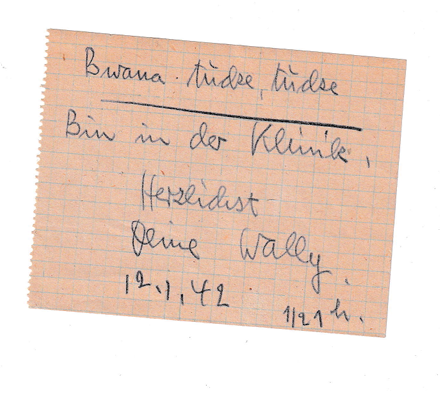 Bwana · tüdse, tüdse
Bin in der Klinik,
Herzlichst
Deine Wally.
12.1.42
1/21 h.